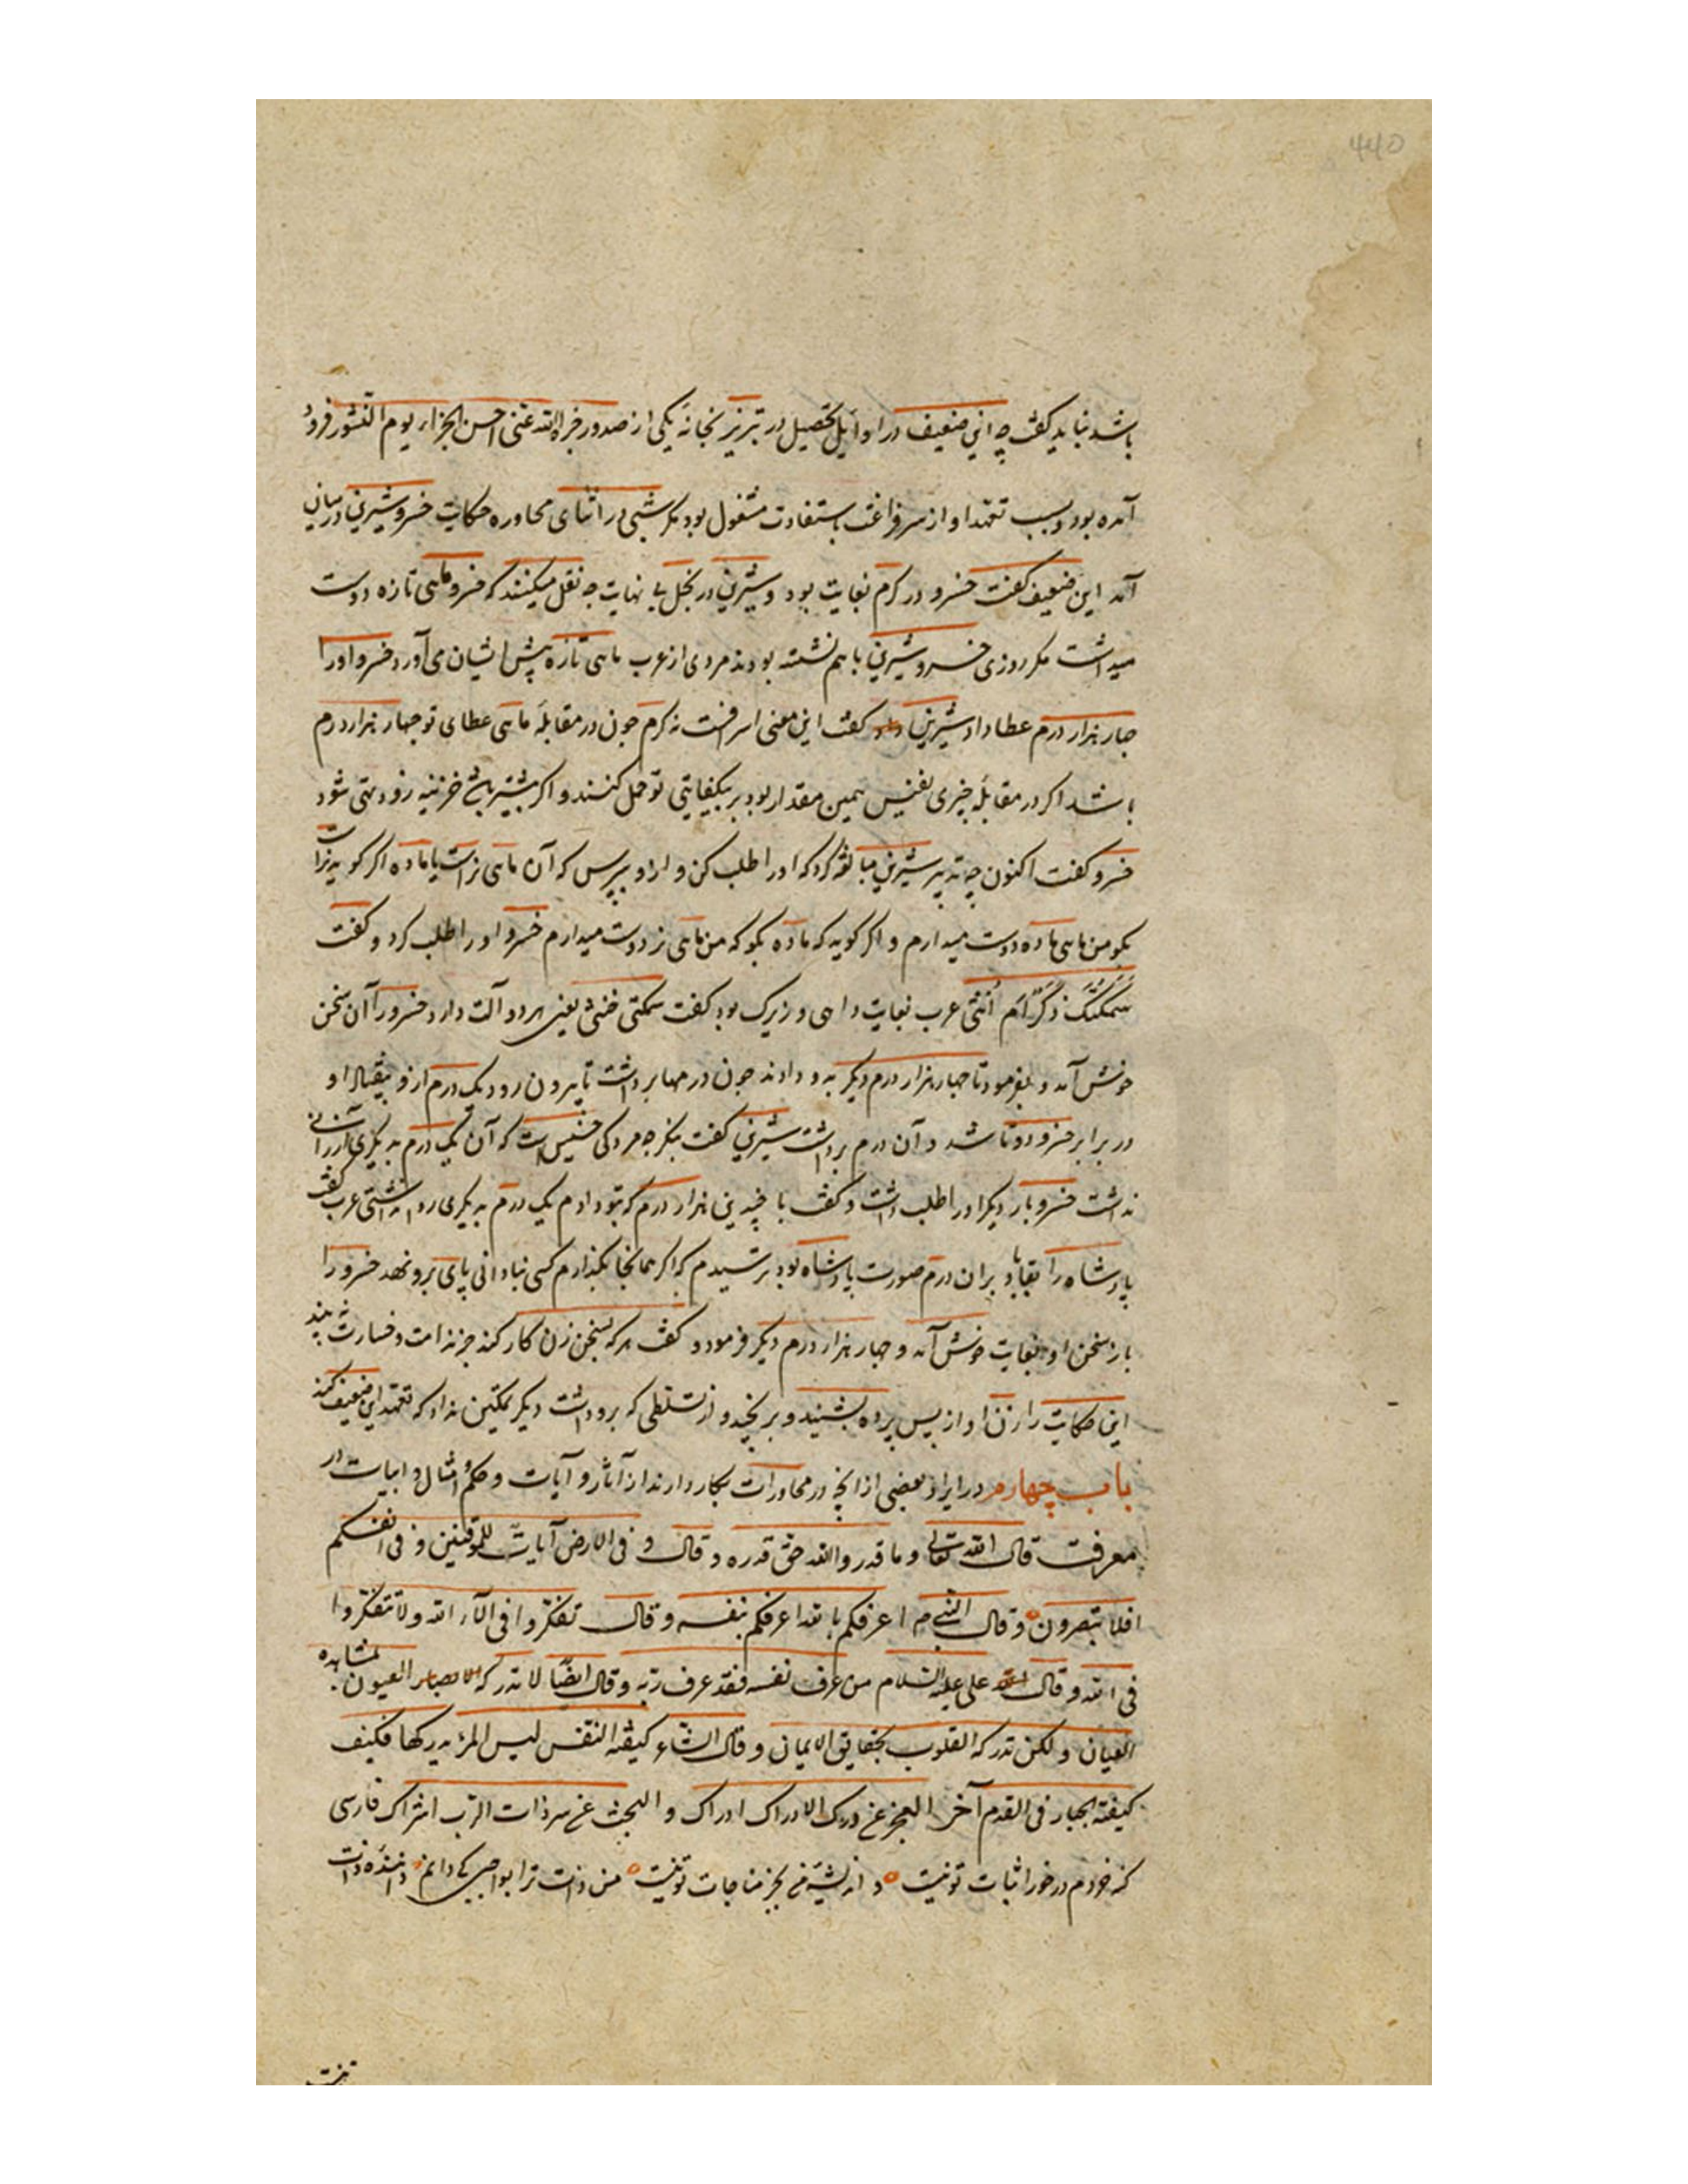 ۴۴۵
باشد نباید گفت چه این ضعیف در اوایل تحصیل در تبریز بخانهٔ یکی از صدور جزاه الله عنی احسن الجزاء یوم النشور فرود
آمده بود و بسبب تعهد او از سر فراغت باستفادت مشغول بود مکر شبی در اثنای محاوره حکایت خسرو و شیرین در میان
آمد این ضعیف گفت خسرو در کرم بغایت بود و شیرین در بخل بی نهایت چه نقل میکنند که خسرو ماهی تازه دوست
میداشت مکر روزی خسرو و شیرین باهم نشسته بودند مردی از عرب ماهی تازه پیش ایشان می آورد خسرو او را
چهار هزار درم عطا داد شیرین گفت این معنی اسرافست نه کرم چون در مقابلهٔ ماهی عطای تو چهار هزار درم
باشد اکر در مقابلهٔ چیزی نفیس همین مقدار بود بر بیکفایتی تو حمل کنند و اکر بیشتر باشد خزینه زود تهی شود
خسرو گفت اکنون چه تدبیر شیرین مبالغه کرد که او را طلب کن و ازو بپرس که آن ماهی نر است یا ماده اکر کوید نر است
بکو من ماهی ماده دوست میدارم و اکر کوید که ماده بکو که من ماهی نر دوست میدارم خسرو او را طلب کرد و کفت
سَمَکَتُکَ ذَکَرٌ اَم اُنثی عرب بغایت داهی و زیرک بود کفت سمکتی خنثی یعنی هر دو آلت دارد خسرو را آن سخن
خوش آمد و بفرمود تا چهار هزار درم دیکر بدو دادند چون درمها برداشت تا بیرون رود یک درم ازو بیفتاد او
در برابر خسرو دوتا شد و آن درم برداشت شیرین کفت بنکر چه مردکی خسیس است که آن یک درم به دیکری ارزانی
نداشت خسرو بار دیکر او را طلب داشت و کفت با چندین هزار درم که بتو دادم یک درم به دیکری روا نداشتی عرب کفت
پادشاه را بقا باد بران درم صورت پادشاه بود ترسیدم که اکر همانجا بکذارم کسی نباید انی پای برو نهد خسرو را
باز سخن او بغایت خوش آمد و چهار هزار درم دیکر فرمود و کفت هر که بسخن زن کار کند جز ندامت و خسارت نبیند
این حکایت را زن او از پس پرده بشنید و برنجید و از تسلطی که برو داشت دیکر تمکین نداد که تعهد این ضعیف کند
باب چهارم در ایراد بعضی از انچه در محاورات بکار دارند از آثار و آیات و حکم و امثال و ابیات در
معرفت قال الله تعالی و ما قدروا الله حق قدره و قال و فی الارض آیات للموقنین و فی انفسکم
افلا تبصرون و قال النبی م اعرفکم بالله اعرفکم بنفسه و قال تفکروا فی آلاء الله و لا تتفکروا
فی الله و قال علی علیه السلام من عرف نفسه فقد عرف ربه و قال ایضًا لا تدرکه العیون بمشاهده
العیان و لکن تدرکه القلوب بحقایق الایمان و قال الشاعر کیفیة النفس لیس المرء یدرکها فکیف
کیفیة الجبار فی القدم آخر العجز عن درک الادراک ادراک و البحث عن سر ذات الرب اشراک فارسی
کنه خردم در خور اثبات تو نیست و اندیشهٔ من بجز مناجات تو نیست من ذات ترا بواجبی کی دانم دانندهٔ ذات